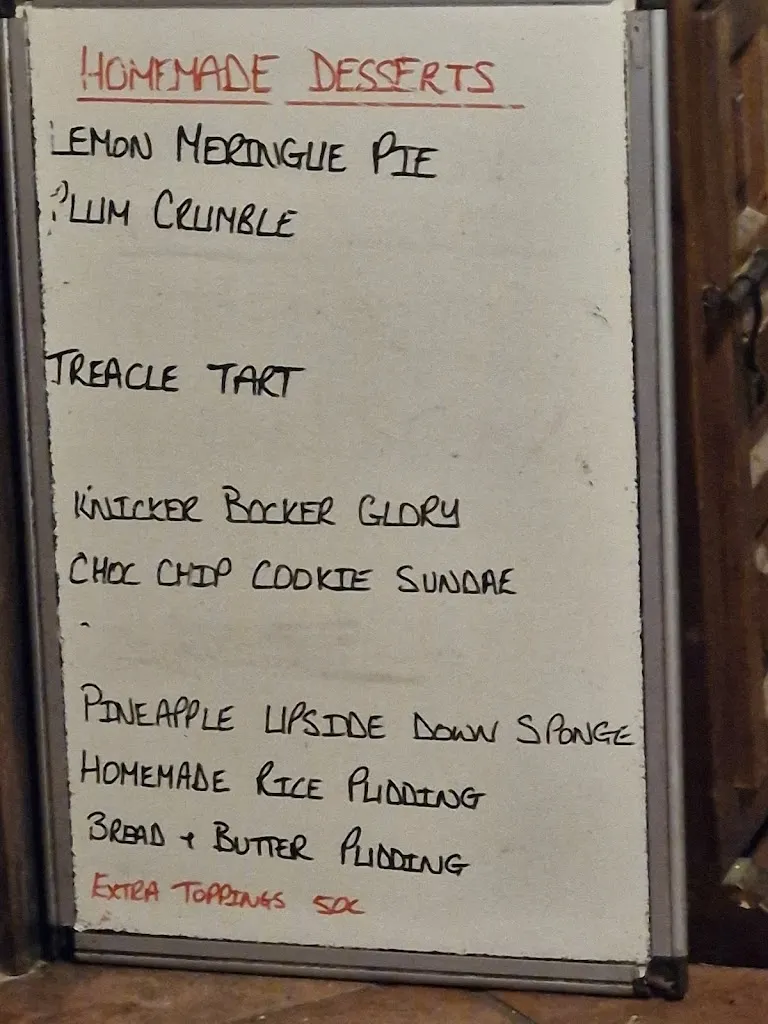 HOMEMADE DESSERTS
LEMON MERINGUE PIE
PLUM CRUMBLE
TREACLE TART
KNICKER BOCKER GLORY
CHOC CHIP COOKIE SUNDAE
PINEAPPLE UPSIDE DOWN SPONGE
HOMEMADE RICE PUDDING
BREAD + BUTTER PUDDING
EXTRA TOPPINGS 50C